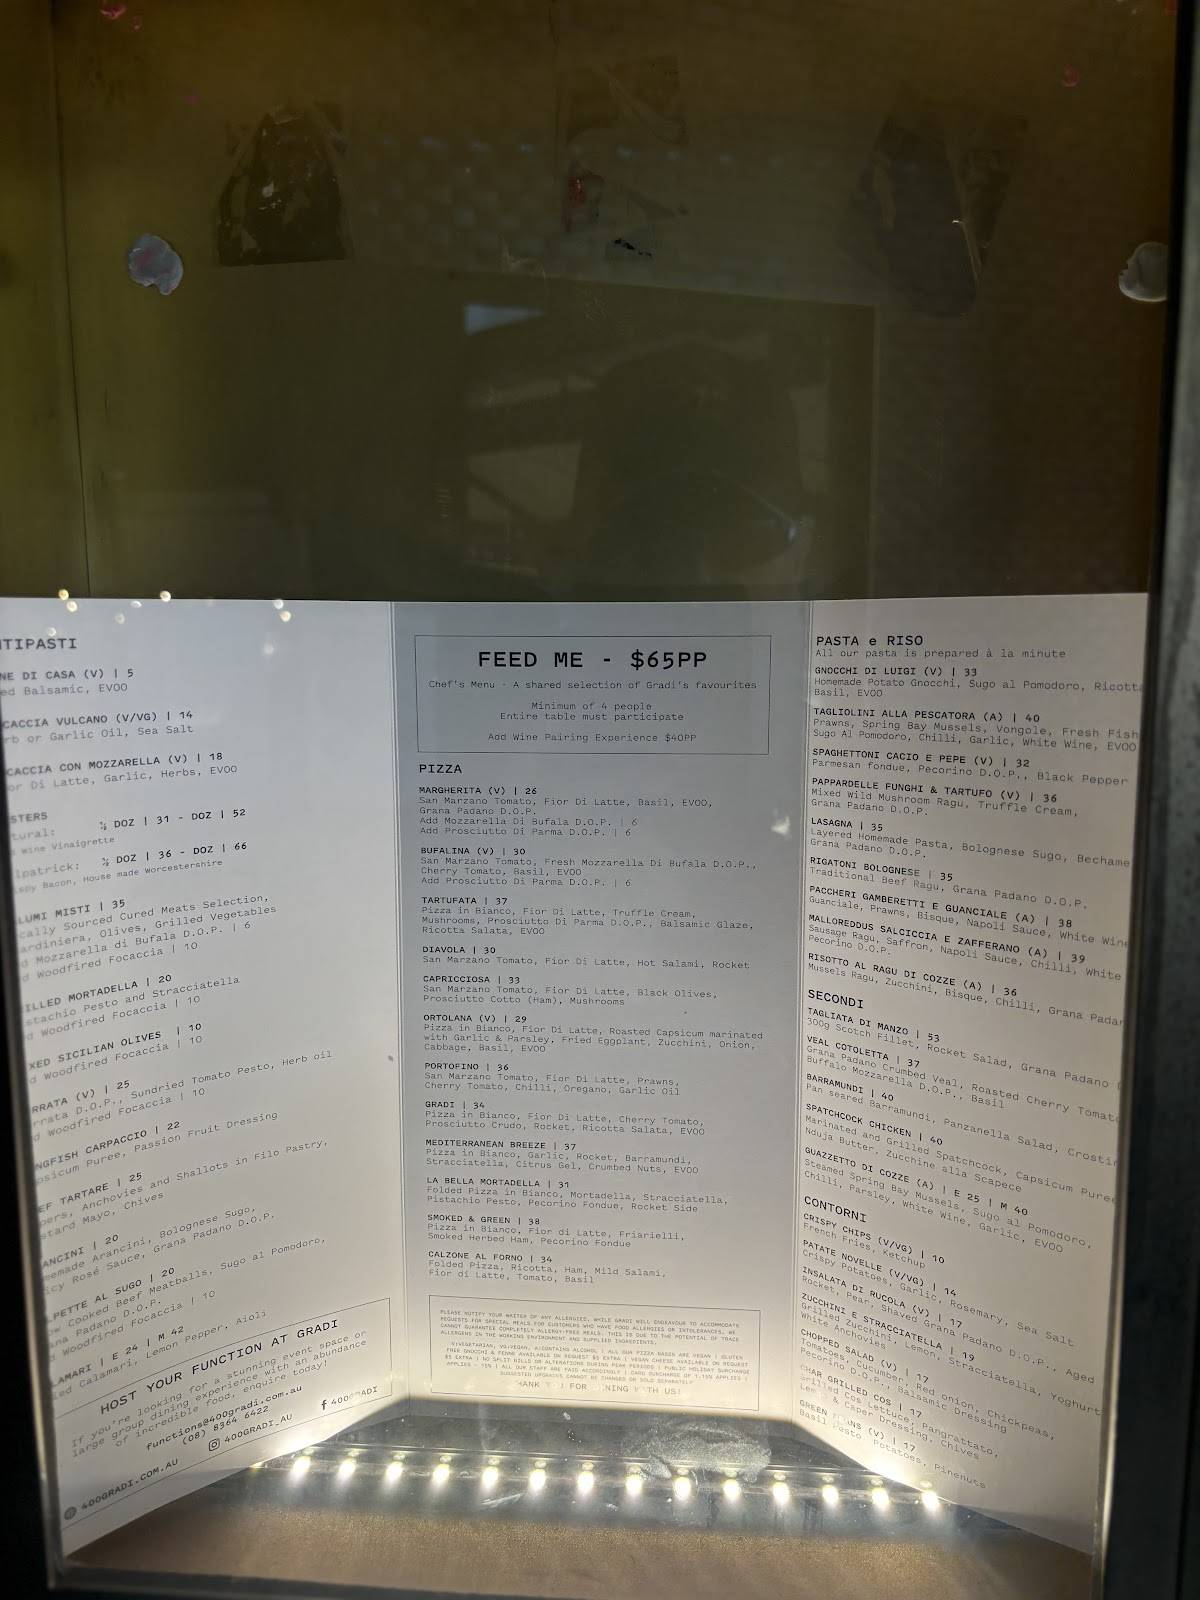 NTIPASTI
NE DI CASA (V) | 5
ed Balsamic, EVOO
CACCIA VULCANO (V/VG) | 14
rb or Garlic Oil, Sea Salt
CACCIA CON MOZZARELLA (V) | 18
or Di Latte, Garlic, Herbs, EVOO
STERS
tural: ½ DOZ | 31 - DOZ | 52
d Wine Vinaigrette
lpatrick: ½ DOZ | 36 - DOZ | 66
ispy Bacon, House made Worcestershire
LUMI MISTI | 35
cally Sourced Cured Meats Selection,
ardiniera, Olives, Grilled Vegetables
d Mozzarella di Bufala D.O.P. | 6
d Woodfired Focaccia | 10
ILLED MORTADELLA | 20
stachio Pesto and Stracciatella
d Woodfired Focaccia | 10
XED SICILIAN OLIVES | 10
d Woodfired Focaccia | 10
RRATA (V) | 25
rrata D.O.P., Sundried Tomato Pesto, Herb oil
d Woodfired Focaccia | 10
NGFISH CARPACCIO | 22
psicum Puree, Passion Fruit Dressing
EF TARTARE | 25
pers, Anchovies and Shallots in Filo Pastry,
stard Mayo, Chives
ANCINI | 20
memade Arancini, Bolognese Sugo,
icy Rosé Sauce, Grana Padano D.O.P.
LPETTE AL SUGO | 20
ow Cooked Beef Meatballs, Sugo al Pomodoro,
ana Padano D.O.P.
d Woodfired Focaccia | 10
LAMARI | E 24 | M 42
ied Calamari, Lemon Pepper, Aioli
HOST YOUR FUNCTION AT GRADI
If you're looking for a stunning event space or
large group dining experience with an abundance
of incredible food, enquire today!
functions@400gradi.com.au
(08) 8364 6422
400GRADI.COM.AU 400GRADI_AU 400GRADI
FEED ME - $65PP
Chef's Menu - A shared selection of Gradi's favourites
Minimum of 4 people
Entire table must participate
Add Wine Pairing Experience $40PP
PIZZA
MARGHERITA (V) | 26
San Marzano Tomato, Fior Di Latte, Basil, EVOO,
Grana Padano D.O.P.
Add Mozzarella Di Bufala D.O.P. | 6
Add Prosciutto Di Parma D.O.P. | 6
BUFALINA (V) | 30
San Marzano Tomato, Fresh Mozzarella Di Bufala D.O.P.,
Cherry Tomato, Basil, EVOO
Add Prosciutto Di Parma D.O.P. | 6
TARTUFATA | 37
Pizza in Bianco, Fior Di Latte, Truffle Cream,
Mushrooms, Prosciutto Di Parma D.O.P., Balsamic Glaze,
Ricotta Salata, EVOO
DIAVOLA | 30
San Marzano Tomato, Fior Di Latte, Hot Salami, Rocket
CAPRICCIOSA | 33
San Marzano Tomato, Fior Di Latte, Black Olives,
Prosciutto Cotto (Ham), Mushrooms
ORTOLANA (V) | 29
Pizza in Bianco, Fior Di Latte, Roasted Capsicum marinated
with Garlic & Parsley, Fried Eggplant, Zucchini, Onion,
Cabbage, Basil, EVOO
PORTOFINO | 36
San Marzano Tomato, Fior Di Latte, Prawns,
Cherry Tomato, Chilli, Oregano, Garlic Oil
GRADI | 34
Pizza in Bianco, Fior Di Latte, Cherry Tomato,
Prosciutto Crudo, Rocket, Ricotta Salata, EVOO
MEDITERRANEAN BREEZE | 37
Pizza in Bianco, Garlic, Rocket, Barramundi,
Stracciatella, Citrus Gel, Crumbed Nuts, EVOO
LA BELLA MORTADELLA | 31
Folded Pizza in Bianco, Mortadella, Stracciatella,
Pistachio Pesto, Pecorino Fondue, Rocket Side
SMOKED & GREEN | 38
Pizza in Bianco, Fior di Latte, Friarielli,
Smoked Herbed Ham, Pecorino Fondue
CALZONE AL FORNO | 34
Folded Pizza, Ricotta, Ham, Mild Salami,
Fior di Latte, Tomato, Basil
PLEASE NOTIFY YOUR WAITER OF ANY ALLERGIES. WHILE GRADI WILL ENDEAVOUR TO ACCOMMODATE
REQUESTS FOR SPECIAL MEALS FOR CUSTOMERS WHO HAVE FOOD ALLERGIES OR INTOLERANCES, WE
CANNOT GUARANTEE COMPLETELY ALLERGY-FREE MEALS. THIS IS DUE TO THE POTENTIAL OF TRACE
ALLERGENS IN THE WORKING ENVIRONMENT AND SUPPLIED INGREDIENTS.
V:VEGETARIAN, VG:VEGAN, A:CONTAINS ALCOHOL | ALL OUR PIZZA BASES ARE VEGAN | GLUTEN
FREE GNOCCHI & PENNE AVAILABLE ON REQUEST $5 EXTRA | VEGAN CHEESE AVAILABLE ON REQUEST
$5 EXTRA | NO SPLIT BILLS OR ALTERATIONS DURING PEAK PERIODS | PUBLIC HOLIDAY SURCHARGE
APPLIES - 15% | ALL OUR STAFF ARE PAID ACCORDINGLY | CARD SURCHARGE OF 1.15% APPLIES |
SUGGESTED UPGRADES CANNOT BE CHANGED OR SOLD SEPARATELY
HANK Y U FOR NING WITH US!
PASTA e RISO
All our pasta is prepared à la minute
GNOCCHI DI LUIGI (V) | 33
Homemade Potato Gnocchi, Sugo al Pomodoro, Ricotta
Basil, EVOO
TAGLIOLINI ALLA PESCATORA (A) | 40
Prawns, Spring Bay Mussels, Vongole, Fresh Fish
Sugo Al Pomodoro, Chilli, Garlic, White Wine, EVOO
SPAGHETTONI CACIO E PEPE (V) | 32
Parmesan fondue, Pecorino D.O.P., Black Pepper
PAPPARDELLE FUNGHI & TARTUFO (V) | 36
Mixed Wild Mushroom Ragu, Truffle Cream,
Grana Padano D.O.P.
LASAGNA | 35
Layered Homemade Pasta, Bolognese Sugo, Bechame
Grana Padano D.O.P.
RIGATONI BOLOGNESE | 35
Traditional Beef Ragu, Grana Padano D.O.P.
PACCHERI GAMBERETTI E GUANCIALE (A) | 38
Guanciale, Prawns, Bisque, Napoli Sauce, White Wine
MALLOREDDUS SALCICCIA E ZAFFERANO (A) | 39
Sausage Ragu, Saffron, Napoli Sauce, Chilli, White
Pecorino D.O.P.
RISOTTO AL RAGU DI COZZE (A) | 36
Mussels Ragu, Zucchini, Bisque, Chilli, Grana Padan
SECONDI
TAGLIATA DI MANZO | 53
300g Scotch Fillet, Rocket Salad, Grana Padano
VEAL COTOLETTA | 37
Grana Padano Crumbed Veal, Roasted Cherry Tomato
Buffalo Mozzarella D.O.P., Basil
BARRAMUNDI | 40
Pan seared Barramundi, Panzanella Salad, Crostin
SPATCHCOCK CHICKEN | 40
Marinated and Grilled Spatchcock, Capsicum Puree
Nduja Butter, Zucchine alla Scapece
GUAZZETTO DI COZZE (A) | E 25 | M 40
Steamed Spring Bay Mussels, Sugo al Pomodoro,
Chilli, Parsley, White Wine, Garlic, EVOO
CONTORNI
CRISPY CHIPS (V/VG) | 10
French Fries, Ketchup
PATATE NOVELLE (V/VG) | 14
Crispy Potatoes, Garlic, Rosemary, Sea Salt
INSALATA DI RUCOLA (V) | 17
Rocket, Pear, Shaved Grana Padano D.O.P., Aged
ZUCCHINI E STRACCIATELLA | 19
Grilled Zucchini, Lemon, Stracciatella, Yoghurt
White Anchovies
CHOPPED SALAD (V) | 17
Tomatoes, Cucumber, Red onion, Chickpeas,
Pecorino D.O.P., Balsamic Dressing
CHAR GRILLED COS | 17
Grilled Cos Lettuce, Pangrattato,
Lemon & Caper Dressing, Chives
GREEN BEANS (V) | 17
Basil Pesto, Potatoes, Pinenuts